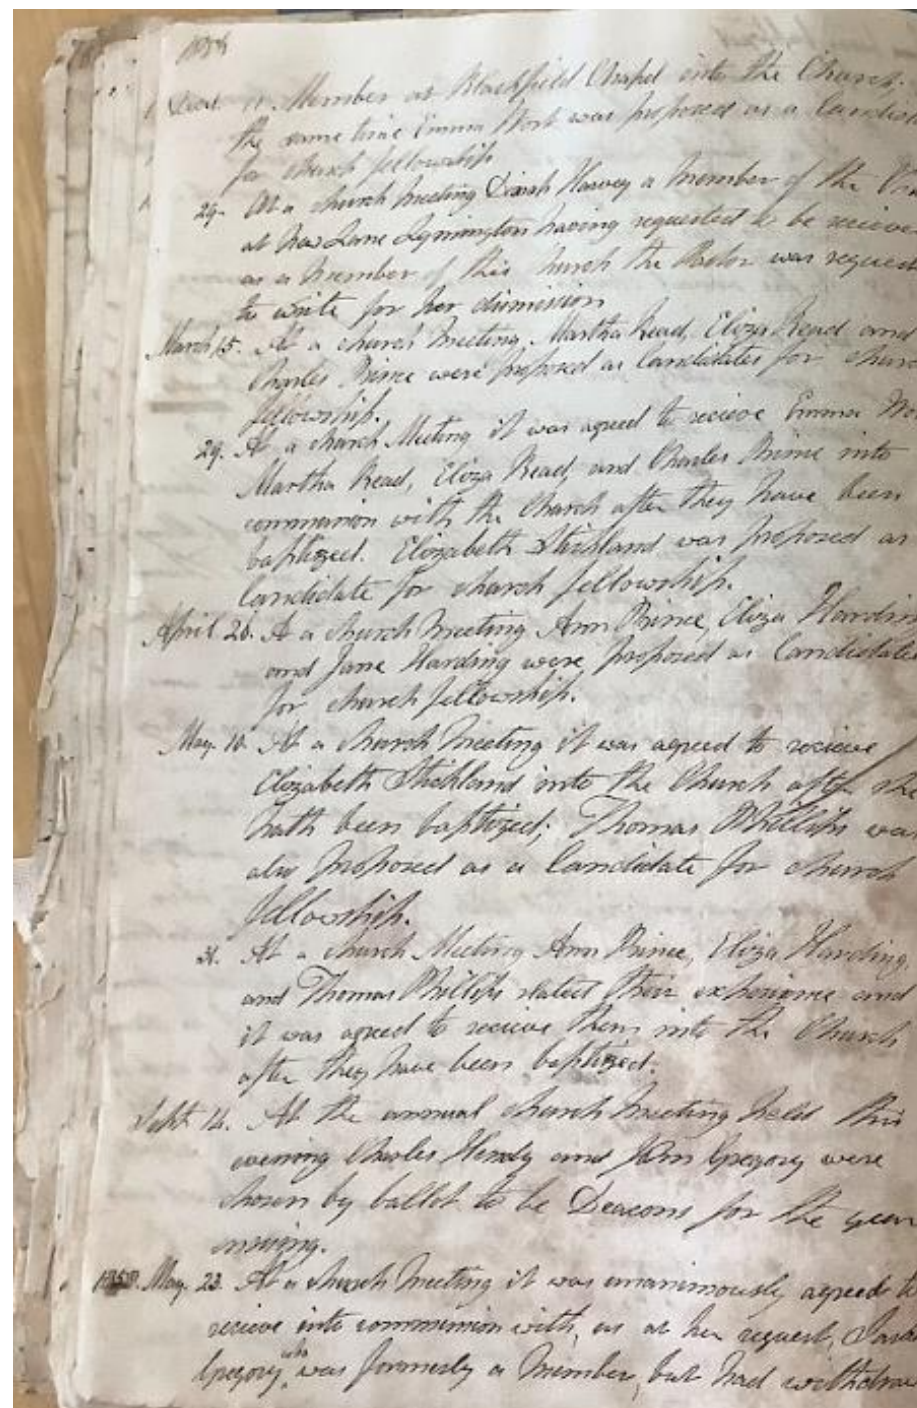 Member at Blackfield Chapel into the Church.
the same time Emma was proposed as a Candid
for church fellowship
29. At a church meeting Dinah Harvey a member of the
at New Lane Lymington having requested to be recieve
as a member of this hurch the Pastor was reques
to write for her dismission
March 15. At a church meeting Martha Read, Eliza Read and
Charles Prince were proposed as Candidates for churc
fellowship.
29. At a church Meeting it was agreed to recieve Emma
Martha Read, Eliza Read, and Charles Prince into
communion with the Church after they have been
baptized. Elizabeth Stickland was proposed as
Candidate for church fellowship.
April 26. At a church meeting Ann Prince, Eliza Hardin
and Jane Harding were proposed as Candidates
for church fellowship.
May. 10. At a church meeting it was agreed to recieve
Elizabeth Stickland into the Church after she
hath been baptized; Thomas Phillips was
also proposed as a Candidate for church
fellowship.
31. At a church Meeting Ann Prince, Eliza Harding,
and Thomas Phillips stated their experience and
it was agreed to recieve them into the Church
after they have been baptized.
Sept. 14. At the annual church meeting held this
evening Charles Hendy and John Gregory were
chosen by ballot to be Deacons for the year
ensuing.
May. 23. At a church meeting it was unanimously agreed to
recieve into communion with us at her request,
Gregory who was formerly a member, but had withdraw